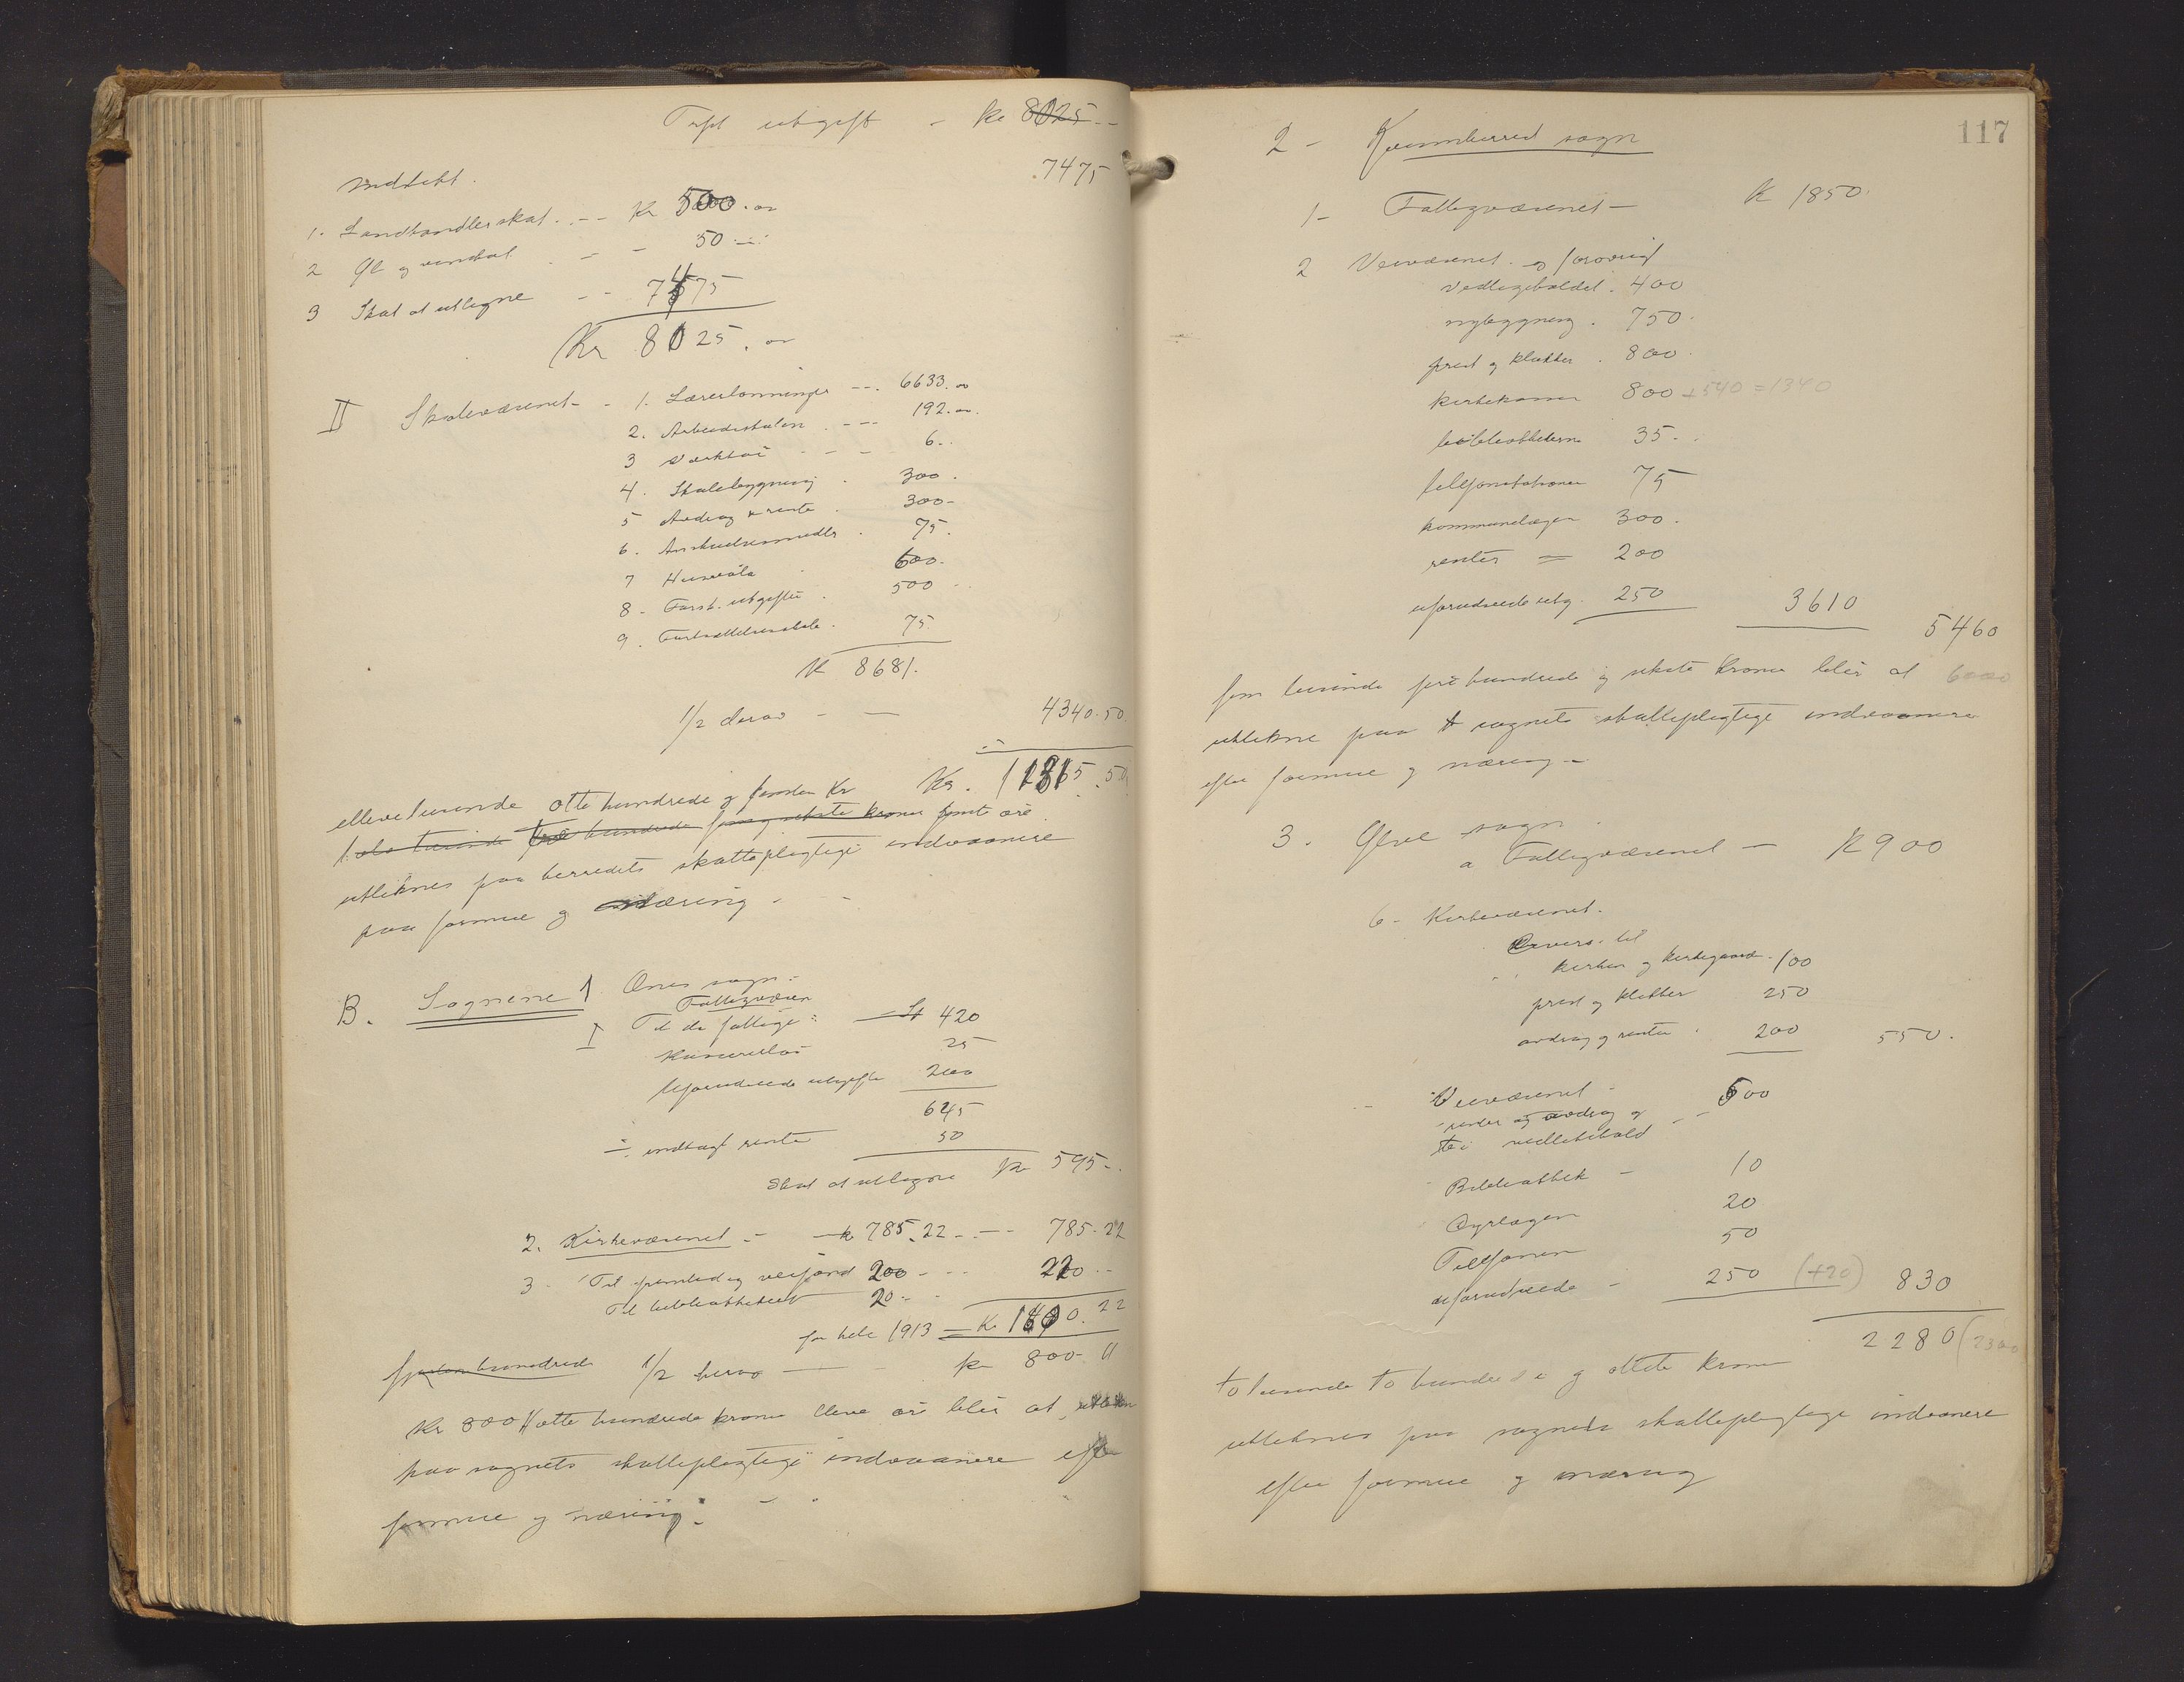 utgift - kr 8025 --
7475
Indtekt.
1. Landhandlerskat. -- Kr 500. oo
2 Øl og vinskat - - 50
3 Skat at utligne -- 7475
Kr 8025. oo
II Skolevæsenet - 1. Lærerlønninger --. 6633. oo
2. Arbeidsskolen . --- 192. oo.
3 Værktøi - - - 6..
4. Skolebygning . 300.
5 Avdrag x rente . 300-
6. Anskuelsesmidler . 75.
7 Husleie 600.
8 - Forsk. utgifter . 500
9. Fortsættelsesskole. 75
Kr 8681.
1/2 derav - — 4340.50
Kr. 11815.50
ellevetusinde otte hundrede og femten Kr
tolv tusinde tre hundrede kroner femti øre
utliknes paa herredets skattepligtige indvaanere
paa formue og næring -
B. Sognene 1 Ønes sogn -
Fattigvæsen
I Til de fattige 420
25
Uforudseede utgifter 200
645
÷ indtægt rente 50
Skat at utligne Kr 595-.
2. Kirkevæsenet - kr 785.22 .-- 785.22
3 - Til veifond 200 - -- 220 --
Til bibliotheket 20 -
for hele 1913 = Kr 1600.22
fjorten hundrede 1/2 herav — kr 800.11
Kr 800 11 otte hundrede kroner elleve øre blir at utlikne
paa sognets skattepligtige indvaanere efter
formue og næring. -
117
2 - Kvernherred sogn
1- Fattigvæsenet - K 1850.
2 Veivæsenet og forøvrigt
vedlikeholdet . 400
nybygning . 750.
prest og klokker . 800.
kirkekassen 800 + 540 = 1340
bibliothekerne 35-.
telefonstationer 75
kommunelægen 300.
renter = 200
uforudseede utg. 250 3610
5460
fem tusinde fire hundrede og seksti kroner blir at 6000
utlikne paa sognets skattepligtige indvaanere
efter formue og næring -
3. sogn.
a Fattigvæsenet - K 900
b - Kirkevæsenet.
til
kirken og kirkegaard . 100
prest og klokker 250
avdrag og renter . 200 550.
Veivæsenet - 500
renter og avdrag og
til vedlikehold
Bibliothek - 10
Dyrlægen 20
Telefonen 50
uforudseede - 250 (+20) 830
2280 (2300
to tusinde to hundrede og otteti kroner
utliknes paa sognets skattepligtige indvaanere
efter formue og næring